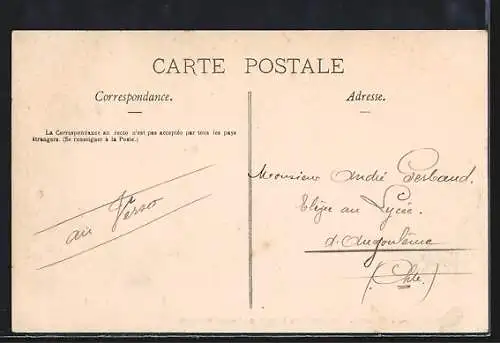 CARTE POSTALE
Correspondance.
Adresse.
La Correspondance au recto n'est pas acceptée par tous les pays
étrangers. (Se renseigner à la Poste.)
au Verso
Monsieur André Gerbaud.
Elève au Lycée.
d'Angoulême
(Chte.)